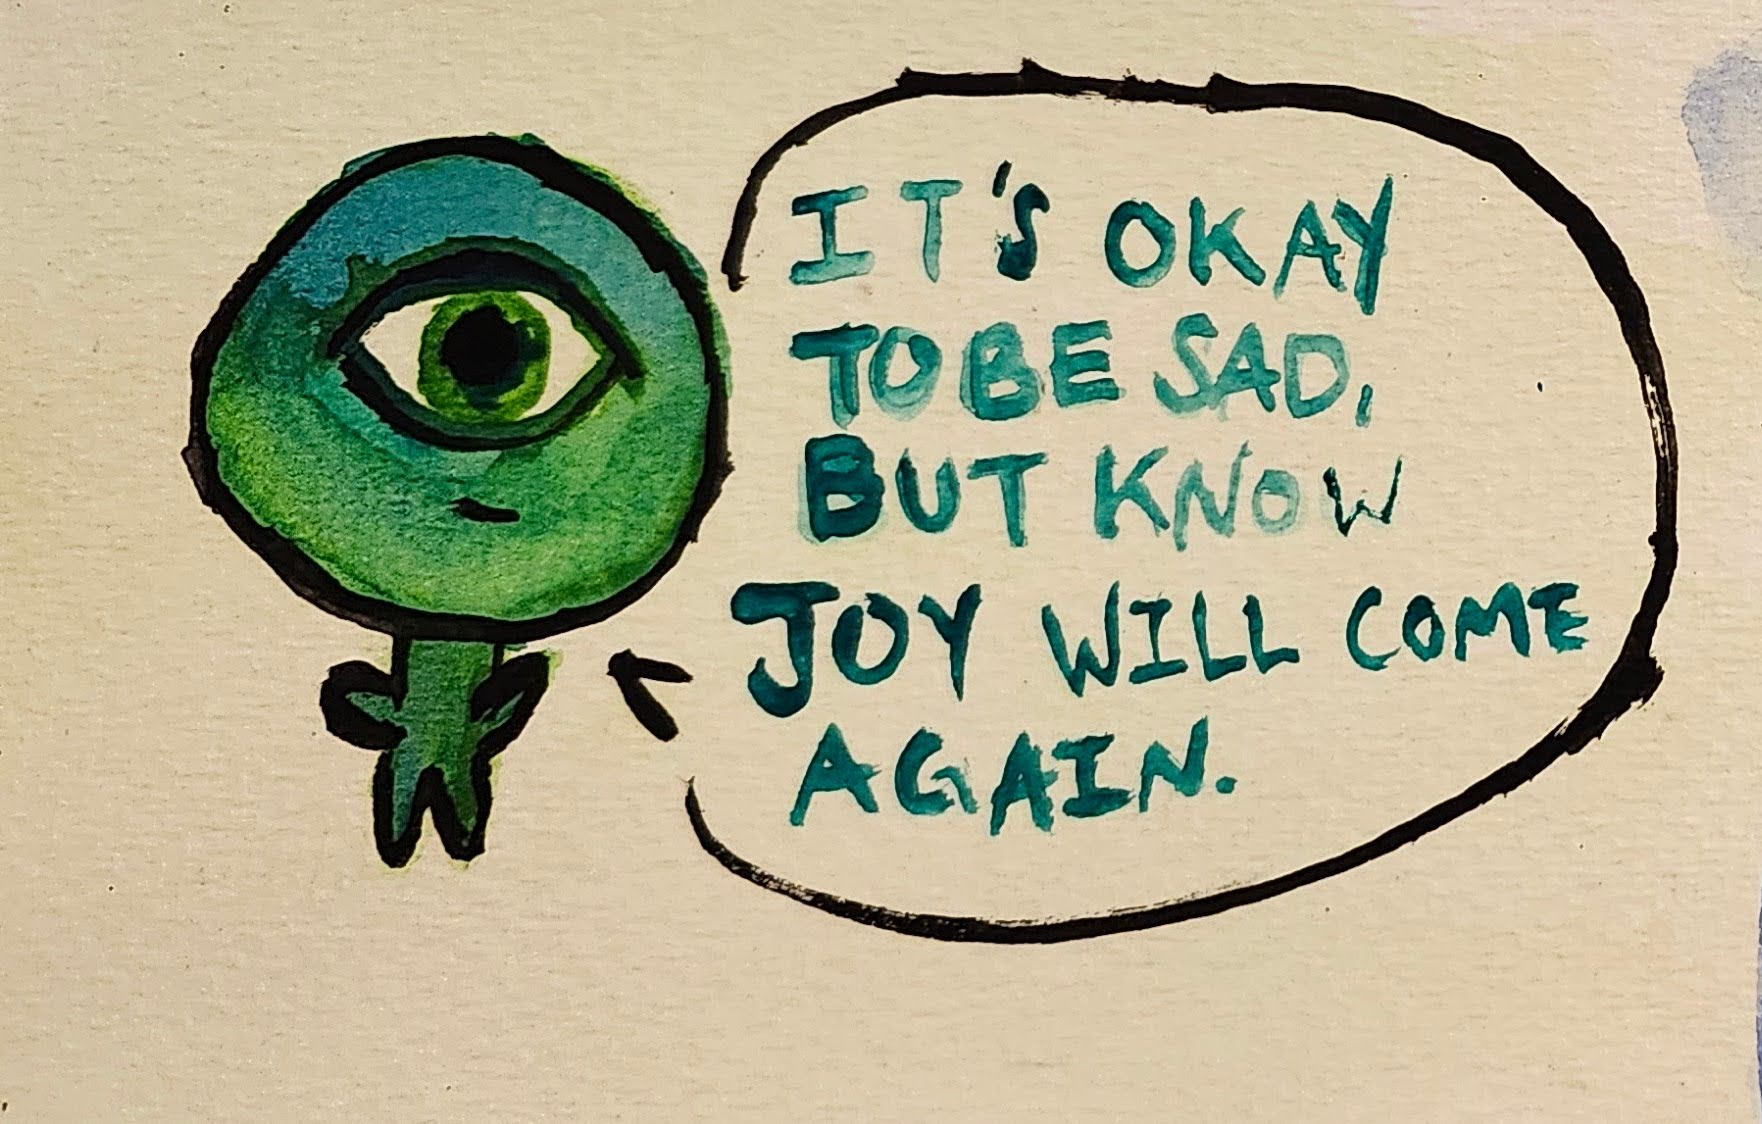 IT'S OKAY
TO BE SAD,
BUT KNOW
JOY WILL COME
AGAIN.